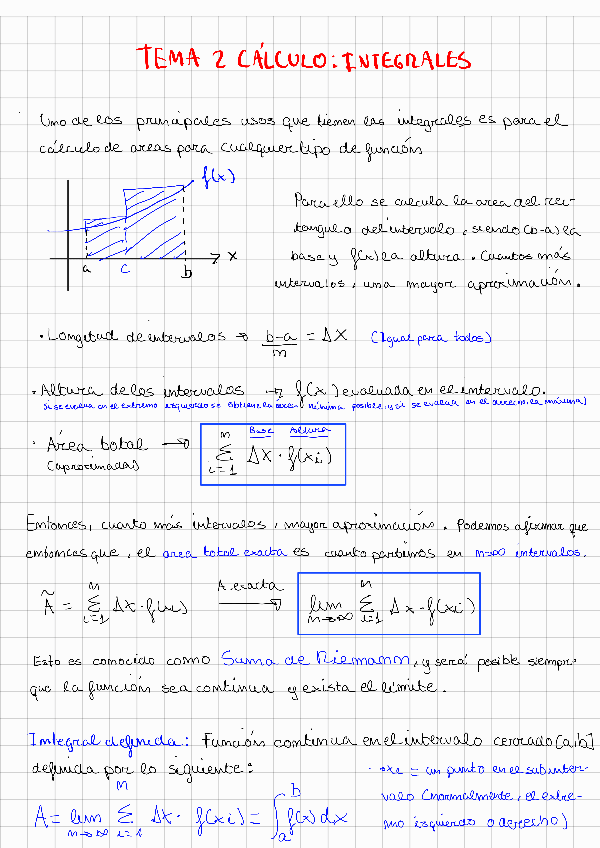 TEMA 2 CÁLCULO: INTEGRALES
Uno de los principales usos que tienen las integrales es para el
cálculo de areas para cualquier tipo de función
f(x)
a c b x
Para ello se calcula la area del rec-
tangulo del intervalo, siendo (b-a) la
base y f(x) la altura. Cuantos más
intervalos, una mayor aproximación.
· Longitud de intervalos → b-a/n = ΔX (Igual para todos)
· Altura de los intervalos → f(x) evaluada en el intervalo.
Si se evalua en el extremo izquierdo se obtiene la area mínima posible, y si se evalua en el derecho, la máxima)
Base Altura
· Área total → n Σ i=1 ΔX · f(xi)
(aproximada)
Entonces, cuanto más intervalos, mayor aproximación. Podemos afirmar que
entonces que, el area total exacta es cuanto partimos en n→∞ intervalos.
Ã = n Σ i=1 Δx · f(xi) A. exacta → lim n→∞ n Σ i=1 Δx · f(xi)
Esto es conocido como Suma de Riemann, y será posible siempre
que la función sea continua y exista el límite.
Integral definida: Función continua en el intervalo cerrado [a,b]
definida por lo siguiente:
A = lim n→∞ n Σ i=1 Δx · f(xi) = ∫ a b f(x) dx
· xi = un punto en el subinter-
valo (normalmente, el extre-
mo izquierdo o derecho)